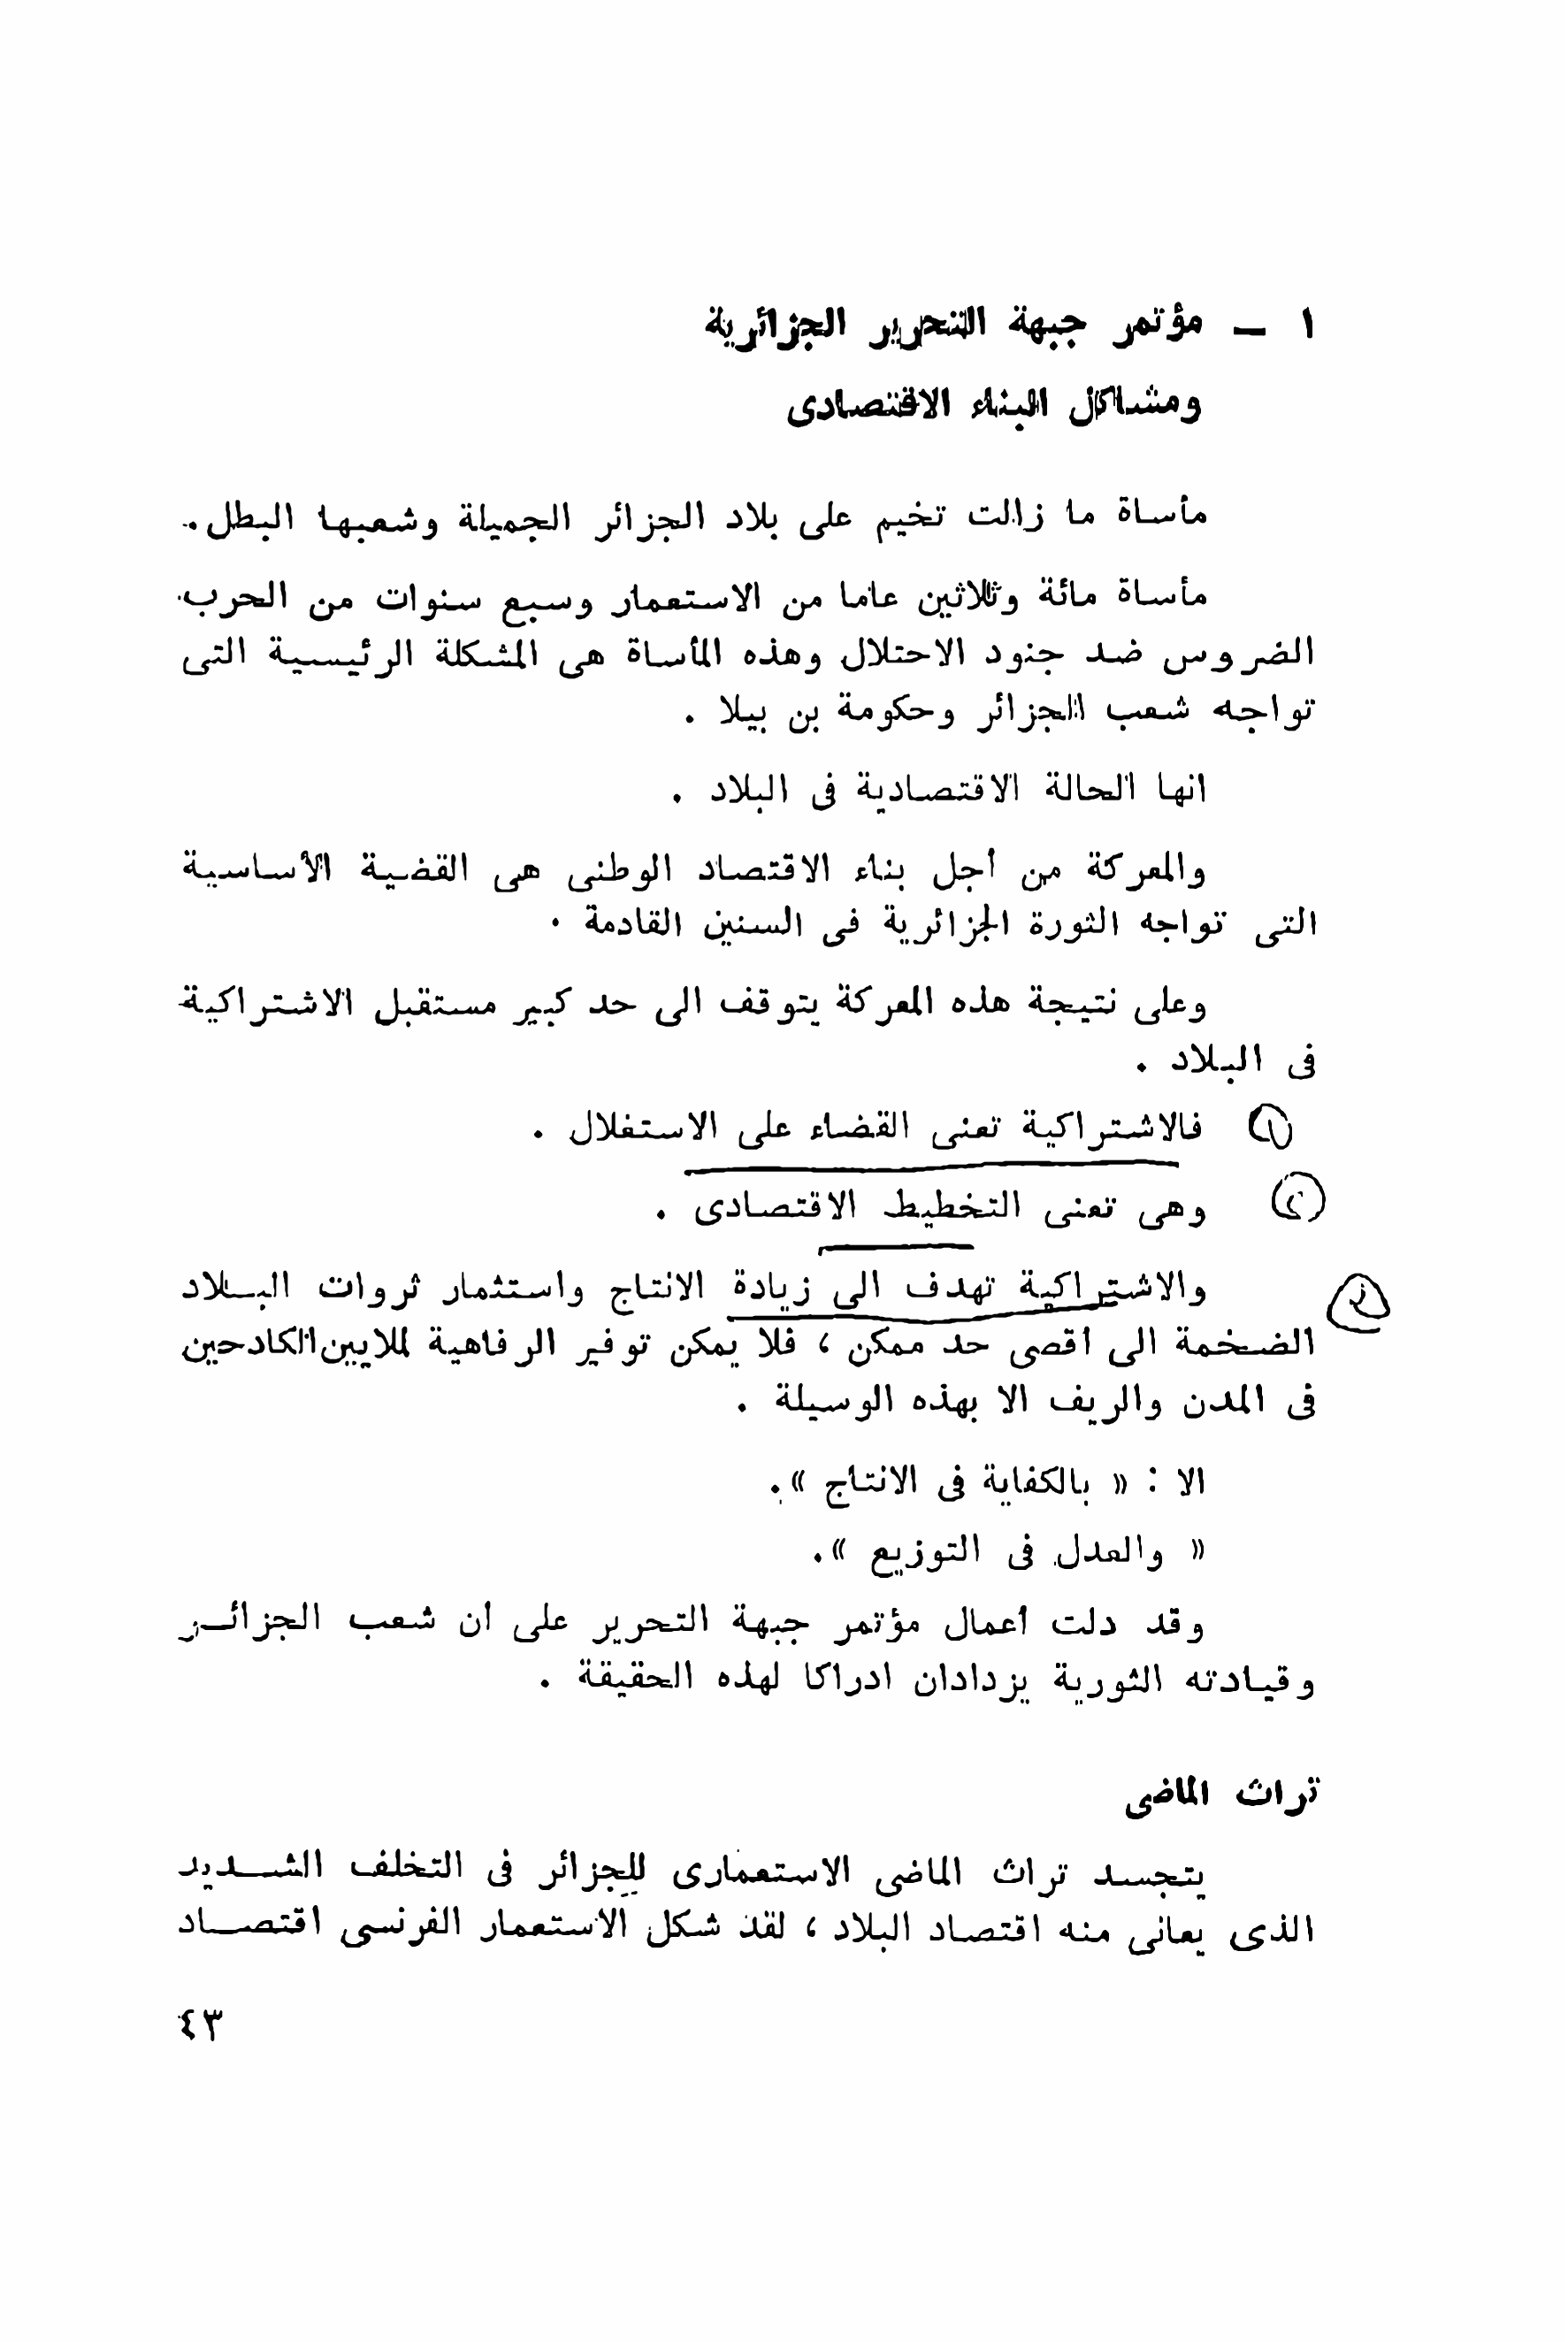 ١ — مؤتمر جبهة التحرير الجزائرية
ومشاكل البناء الاقتصادى
مأساة ما زالت تخيم على بلاد الجزائر الجميلة وشعبها البطل .
مأساة مائة وثلاثين عاما من الاستعمار وسبع سنوات من الحرب
الضروس ضد جنود الاحتلال وهذه المأساة هى المشكلة الرئيسية التى
تواجه شعب الجزائر وحكومة بن بيلا .
انها الحالة الاقتصادية فى البلاد .
والمعركة من أجل بناء الاقتصاد الوطنى هى القضية الأساسية
التى تواجه الثورة الجزائرية فى السنين القادمة .
وعلى نتيجة هذه المعركة يتوقف الى حد كبير مستقبل الاشتراكية
فى البلاد .
① فالاشتراكية تعنى القضاء على الاستغلال .
② وهى تعنى التخطيط الاقتصادى .
والاشتراكية تهدف الى زيادة الانتاج واستثمار ثروات البلاد
الضخمة الى اقصى حد ممكن ، فلا يمكن توفير الرفاهية لملايين الكادحين
فى المدن والريف الا بهذه الوسيلة .
الا : « بالكفاية فى الانتاج ».
« والعدل فى التوزيع ».
وقد دلت أعمال مؤتمر جبهة التحرير على أن شعب الجزائر
وقيادته الثورية يزدادان ادراكا لهذه الحقيقة .
تراث الماضى
يتجسد تراث الماضى الاستعمارى للجزائر فى التخلف الشديد
الذى يعانى منه اقتصاد البلاد ، لقد شكل الاستعمار الفرنسى اقتصاد
٤٣